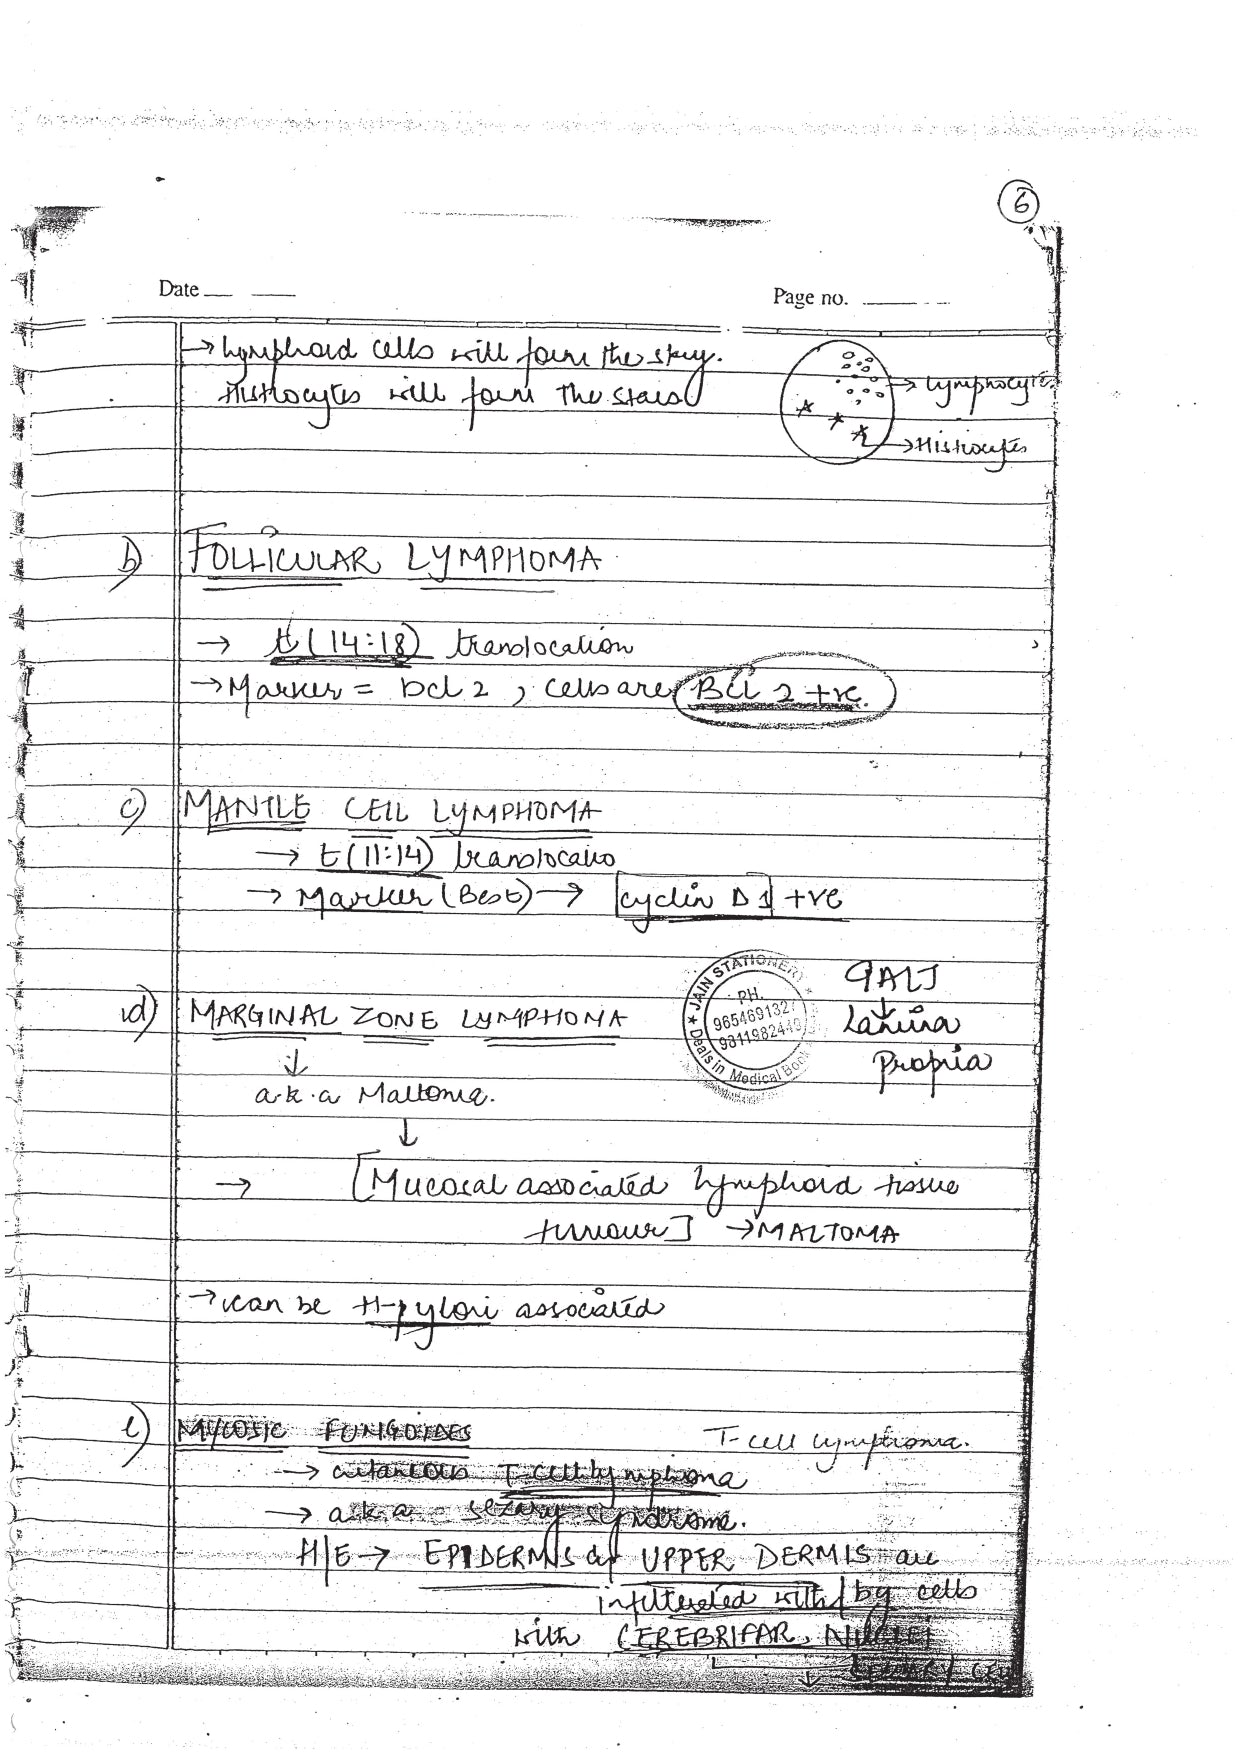 6
Date
Page no.
→ Lymphoid cells will form the sky.
Histiocytes will form the stars
→ Lymphocytes
→ Histiocytes
b) FOLLICULAR LYMPHOMA
→ t(14:18) translocation
→ Marker = bcl 2, cells are Bcl 2 +ve.
c) MANTLE CELL LYMPHOMA
→ t(11:14) translocatio
→ Marker (Best) → cyclin D1 +ve
d) MARGINAL ZONE LYMPHOMA
JAIN STATIONERY
PH.
Deals in Medical Book
GALT
↓
Lamina
Propria
↓
a.k.a Maltoma.
↓
→ [Mucosal associated lymphoid tissue
tumour] → MALTOMA
→ can be H-pylori associated
e) MYCOSIC FUNGOIDES
T-cell lymphoma.
→ cutaneous T-cell lymphoma
→ a.k.a - sezary syndrome.
H/E → EPIDERMIS & UPPER DERMIS are
infiltereted with / by cells
with CEREBRIFAR, NUCLEI
↓